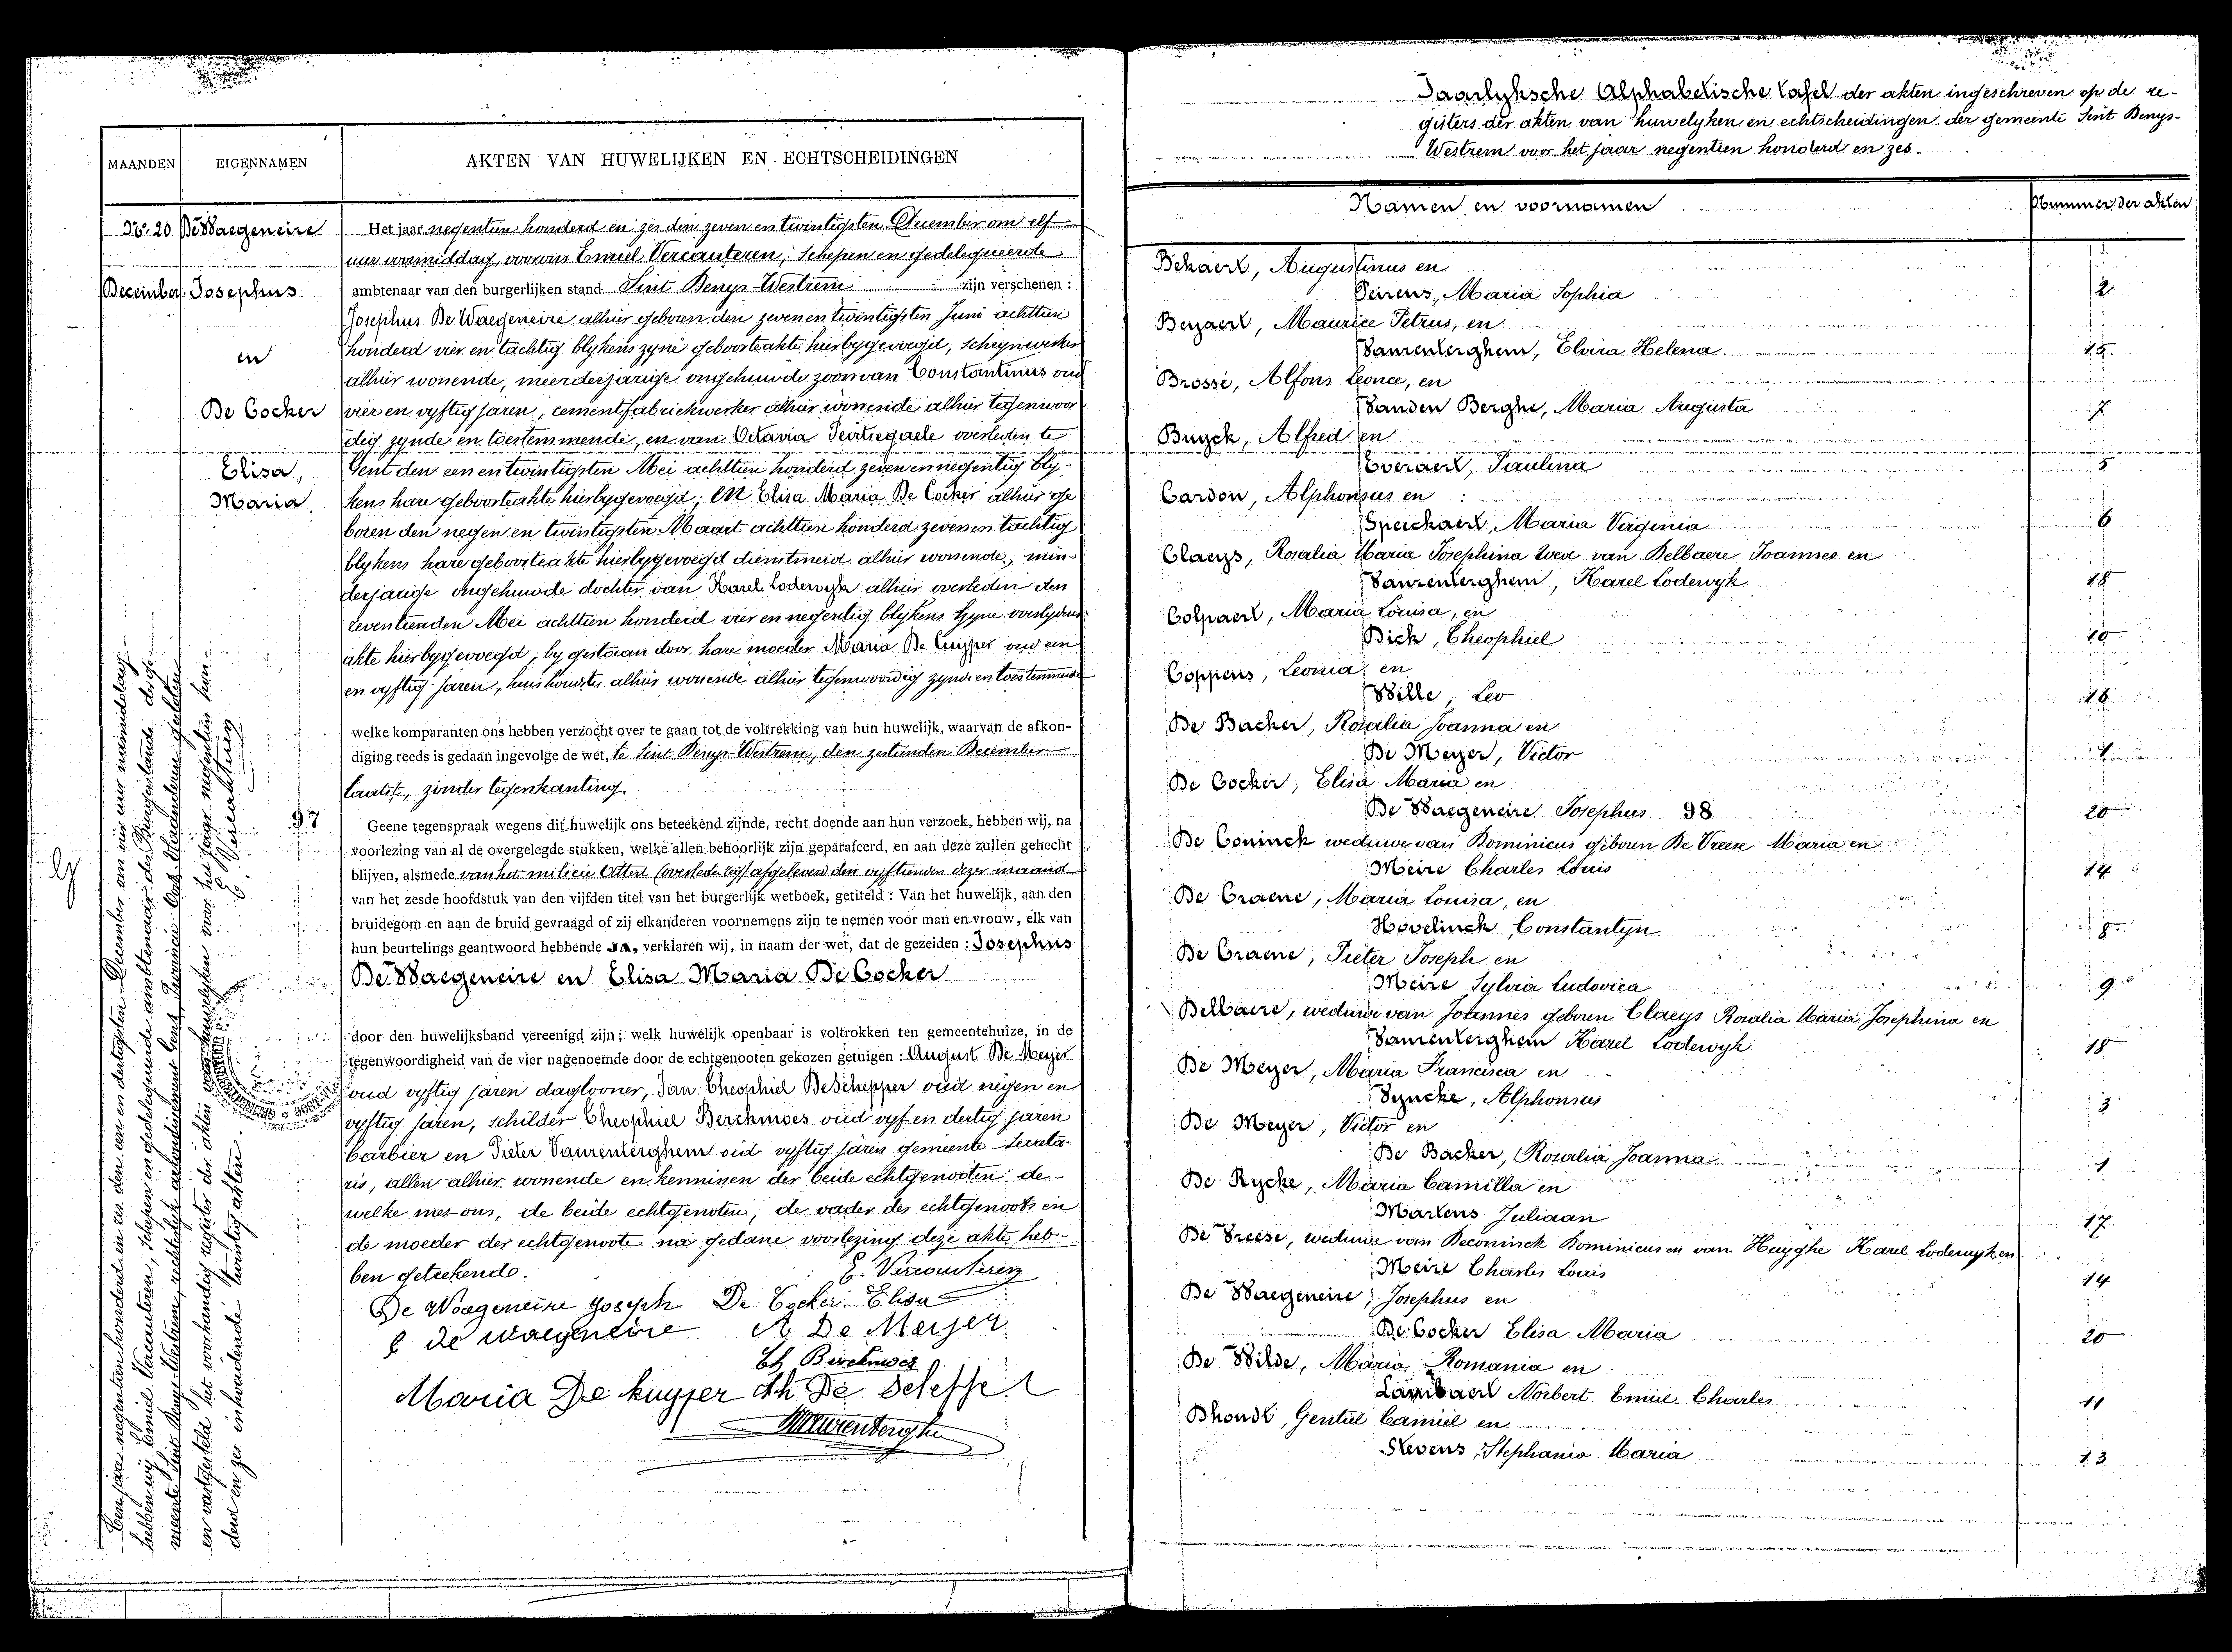 MAANDEN
EIGENNAMEN
AKTEN VAN HUWELIJKEN EN ECHTSCHEIDINGEN
No. 20
De Waegeneire
December
Josephus
en
De Cocker
Elisa,
Maria
97
Het jaar negentien honderd en zes den zeven en twintigsten December om elf
uur voormiddag, voor ons Emiel Vercauteren, Schepen en gedelegueerde
ambtenaar van den burgerlijken stand Sint Denys-Westrem zijn verschenen :
Josephus De Waegeneire alhier geboren den zeven en twintigsten Juni achttien
honderd vier en tachtig blykens zyne geboorteakte hierbygevoegd, schrynwerker
alhier wonende, meerderjarige ongehuwde zoon van Constantinus oud
vier en vyftig jaren, cementfabriekwerker alhier wonende alhier tegenwoor
dig zynde en toestemmende, en van Octavia Peirtsegaele overleden te
Gent den een en twintigsten Mei achttien honderd zeven en negentig bly-
kens hare geboorteakte hierbygevoegd; en Elisa Maria De Cocker alhier ge
boren den negen en twintigsten Maart achttien honderd zeven en tachtig
blykens hare geboorteakte hierbygevoegd dienstmeid alhier wonende, min-
derjarige ongehuwde dochter van Karel Lodewyk alhier overleden den
zeventienden Mei achttien honderd vier en negentig blykens zyne overlydens
akte hierbygevoegd, by gestaan door hare moeder Maria De Cuyper oud een
en vyftig jaren, huishoudster alhier wonende alhier tegenwoordig zynde en toestemmende
welke komparanten ons hebben verzocht over te gaan tot de voltrekking van hun huwelijk, waarvan de afkon-
diging reeds is gedaan ingevolge de wet, te Sint Denys-Westrem, den zestienden December
laatst, zonder tegenkanting.
Geene tegenspraak wegens dit huwelijk ons beteekend zijnde, recht doende aan hun verzoek, hebben wij, na
voorlezing van al de overgelegde stukken, welke allen behoorlijk zijn geparafeerd, en aan deze zullen gehecht
blijven, alsmede van het milicie attest afgeleverd den vyftienden dezer maand
van het zesde hoofdstuk van den vijfden titel van het burgerlijk wetboek, getiteld : Van het huwelijk, aan den
bruidegom en aan de bruid gevraagd of zij elkanderen voornemens zijn te nemen voor man en vrouw, elk van
hun beurtelings geantwoord hebbende JA, verklaren wij, in naam der wet, dat de gezeiden : Josephus
De Waegeneire en Elisa Maria De Cocker
door den huwelijksband vereenigd zijn; welk huwelijk openbaar is voltrokken ten gemeentehuize, in de
tegenwoordigheid van de vier nagenoemde door de echtgenooten gekozen getuigen : August De Meyer
oud vyftig jaren daglooner, Jan Theophiel De Schepper oud negen en
vyftig jaren, schilder Theophiel Berckmoes oud vyf en dertig jaren
barbier en Pieter Vaurenterghem oud vyftig jaren gemeente secreta-
ris, allen alhier wonende en kennissen der beide echtgenooten: de-
welke met ons, de beide echtgenoten, de vader des echtgenoots en
de moeder der echtgenoote na gedane voorlezing deze akte heb-
ben geteekend.
E. Vercauteren
De Waegeneire Joseph De Cocker Elisa
C De Waegeneire A De Meyer
Th Berckmoes
Maria De kuyper Th De Schepper
Ten jare negentien honderd en zes den een en dertigsten December om vier uur namiddag
hebben wij Emiel Vercauteren, schepen en gedelegueerde ambtenaar des Burgerstands der ge-
meente Sint Denys-Westrem, rechterlyk arrondissement Gent, Provincie Oost-Vlaanderen gesloten
en vastgesteld het voorhandig register der akten van huwelyken voor het jaar negentien hon-
derd en zes inhoudende twintig akten.
E. Vercauteren
Jaarlyksche Alphabetische tafel der akten ingeschreven op de re-
gisters der akten van huwelyken en echtscheidingen der gemeente Sint Denys-
Westrem voor het jaar negentien honderd en zes.
Namen en voornamen
Nummer der akten
Bekaert, Augustinus en
Peirens, Maria Sophia 2
Beyaert, Maurice Petrus, en
Vaurenterghem, Elvira Helena 15
Brossé, Alfons Leonce, en
Vanden Berghe, Maria Augusta 7
Buyck, Alfred en
Everaert, Paulina 5
Cardon, Alphonsus en
Speeckaert, Maria Virginia 6
Claeys, Rosalia Maria Josephina Wed. van Delbaere Joannes en
Vaurenterghem, Karel Lodewyk 18
Colpaert, Maria Louisa, en
Dick, Theophiel 10
Coppens, Leonia en
Wille, Leo 16
De Backer, Rosalia Joanna en
De Meyer, Victor 1
De Cocker, Elisa Maria en
De Waegeneire Josephus 98 20
De Coninck weduwe van Dominicus geboren De Vreese Maria en
Meire Charles Louis 14
De Craene, Maria Louisa, en
Hovelinck, Constantyn 8
De Craene, Pieter Joseph en
Meire Sylvia Ludovica 9
Delbaere, weduwe van Joannes geboren Claeys Rosalia Maria Josephina en
Vaurenterghem Karel Lodewyk 18
De Meyer, Maria Francisca en
Syncke, Alphonsus 3
De Meyer, Victor en
De Backer, Rosalia Joanna 1
De Rycke, Maria Camilla en
Martens Juliaan 17
De Vreese, weduwe van Deconinck Dominicus en van Huyghe Karel Lodewyk en
Meire Charles Louis 14
De Waegeneire, Josephus en
De Cocker Elisa Maria 20
De Wilde, Maria Romania en
Lambaert Norbert Emiel Charles 11
Dhondt, Gentiel Camiel en
Stevens, Stephania Maria 13